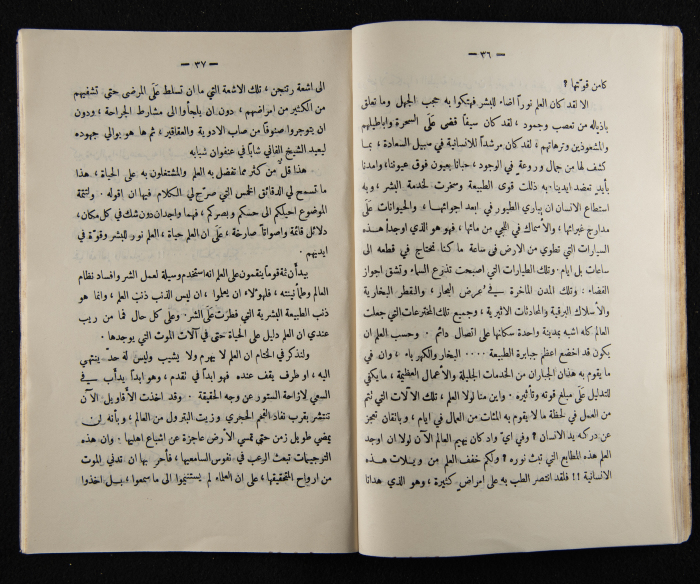 — ٣٦ —
كامن قوتها ؟
الا لقد كان العلم نوراً اضاء للبشر فهتكوا به حجب الجهل وما تعلق
باذياله من تعصب وجمود ، لقد كان سيفاً قضى عَلَى السحرة واباطيلهم
والمشعوذين وترهاتهم ، لقد كان مرشداً للانسانية في سبيل السعادة ، بما
كشف لها من جمال وروعة في الوجود ، حبانا بعيون فوق عيوننا، وامدنا
بأيد تعضد ايدينا، به ذللت قوى الطبيعة وسخرت لخدمة البشر ، وبه
استطاع الانسان ان يباري الطيور في ابعد اجوائهـا ، والحيوانات عَلَى
مدارج غبرائها ، والاسماك في اللجي من مائها ، فهو هو الذي اوجد اهذه
السيارات التي تطوي من الارض في ساعة ما كنا نحتاج في قطعه الى
ساعات بل ايام . وتلك الطيارات التي اصبحت تذرع السماء وتشق اجواز
الفضاء : وتلك المدن الماخرة في عرض البحار ، والقطر البخارية
والأسلاك البرقية والمحادثات الاثيرية ، وجميع تلك المخترعات التي جعلت
العالم كله اشبه بمدينة واحدة سكانها على اتصال دائم . وحسب العلم ان
يكون قد اخضع اعظم جبابرة الطبيعة .... البخار والكهرباء ، وان في
ما يقوم به هذان الجباران من الخدمات الجليلة والأعمال العظيمة ، ما يكفي
للتدليل عَلَى مبلغ قوته وتأثيره . واين منا لولا العلم ، تلك الآلات التي تتم
من العمل في لحظة ما لا يقوم به المئات من العمال في ايام ، وباتقان تعجز
عن دركه يد الانسان ؟ وفي ايّ واد كان يهيم العالم الآن لولا ان اوجد
العلم هذه المطابع التي تبث نوره ؟ ولكم خفف العلم من ويـلات هـذه
الانسانية !! فلقد انتصر الطب به على امراضٍ كثيرة ، وهو الذي هدانا
— ٣٧ —
الى اشعة رنتجن ، تلك الاشعة التي ما ان تسلط عَلَى المرضى حتى تشفيهم
من الكثير من امراضهم ، دون ان يلجأوا الى مشارط الجراحة ، ودون
ان يتوجروا صنوفاً من صاب الادوية والعقاقير ، ثم ها هو يوالي جهوده
ليعيد الشيخ الفاني شاباً في عنفوان شبابه
هذا قلّ من كثر مما تفضل به العلم والمشتغلون به على الحياة ، هذا
ما تسمح لي الدقائق الخمس التي صرّح لي الكلام فيها ان اقوله . ولتتمة
الموضوع احيلكم الى حسكم وبصركم ، فهما واجدان دون شك في كل مكان،
دلائل قائمة واصواتاً صارخة ، عَلَى ان العلم حياة ، العلم نور للبشر وقوّة في
ايديهم .
بيد أن ثمة قوماً ينقمون على العلم انه استخدم وسيلة لعمل الشر وافساد نظام
العالم وطمأنينته ، فلهؤلاء ان يعلموا ، ان ليس الذنب ذنب العلم ، وانما هو
ذنب الطبيعة البشرية التي فطرت عَلَى الشر . وعلى كل حال فما من ريب
عندي ان العلم دليل على الحياة حتى في آلات الموت التي يوجدها .
ولنذكر في الختام ان العلم لا يهرم ولا يشيب وليس له حدّ ينتهي
اليه ، او طرف يقف عنده فهو ابداً في تقدم ، وهو ابداً يدأب في
السعي لازاحة الستور عن وجه الحقيقة . وقد اخذت الأقاويل الآن
تنتشر بقرب نفاد الفحم الحجري وزيت البترول من العالم ، وبأنه لن
يمضي طويل زمن حتى تمسي الأرض عاجزة عن اشباع اهليها . وان هذه
الترجيات تبعث الرعب في نفوس السامعيها ، فأحر بها ان تدني الموت
من ارواح المحققيها ، على ان العلماء لم يستنيموا الى ما سمعوا ، بـل اخذوا